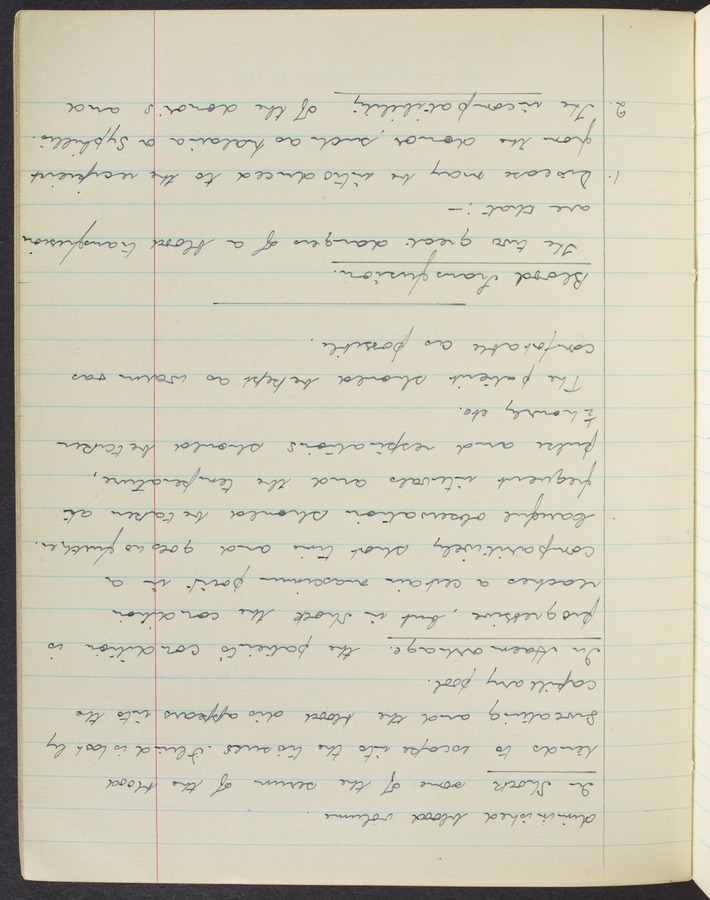 diminished blood volume.
In Shock some of the serum of the blood
tends to escape into the tissues. Fluid is lost by
Sweating and the blood disappears into the
capillary pool.
In Haemorrhage. the patients condition is
progressive, but in Shock the condition
reaches a certain maximum point in a
comparitively short time and goes no further.
Careful observation should be taken at
frequent intervals and the temperature,
pulse and respirations should be taken
½ hourly etc.
The patient should be kept as warm & as
comfortable as possible.
Blood Transfusion.
The two great dangers of a blood transfusion
are that: –
1. Disease may be introduced to the recipient
from the donor, such as Malaria or Syphilis.
2. The incompatibility of the donor's and